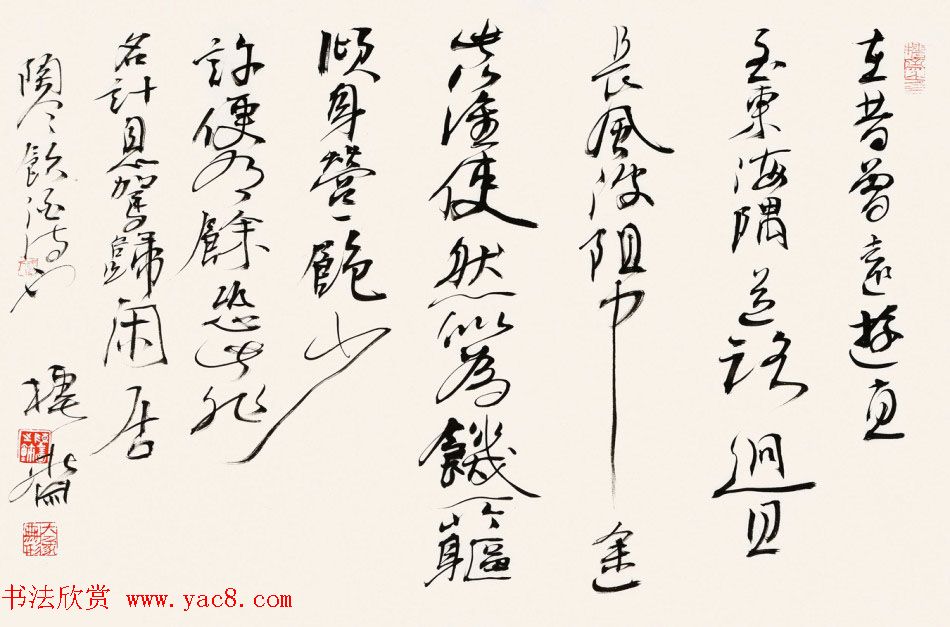 在昔曾遠遊直
至東海隅道路迥且
長風波阻中途
此行誰使然似為饑所軀
傾身營一飽少
許便有餘恐此非
名計息駕歸闲居
陶令飲酒詩也
书法欣赏 www.yac8.com